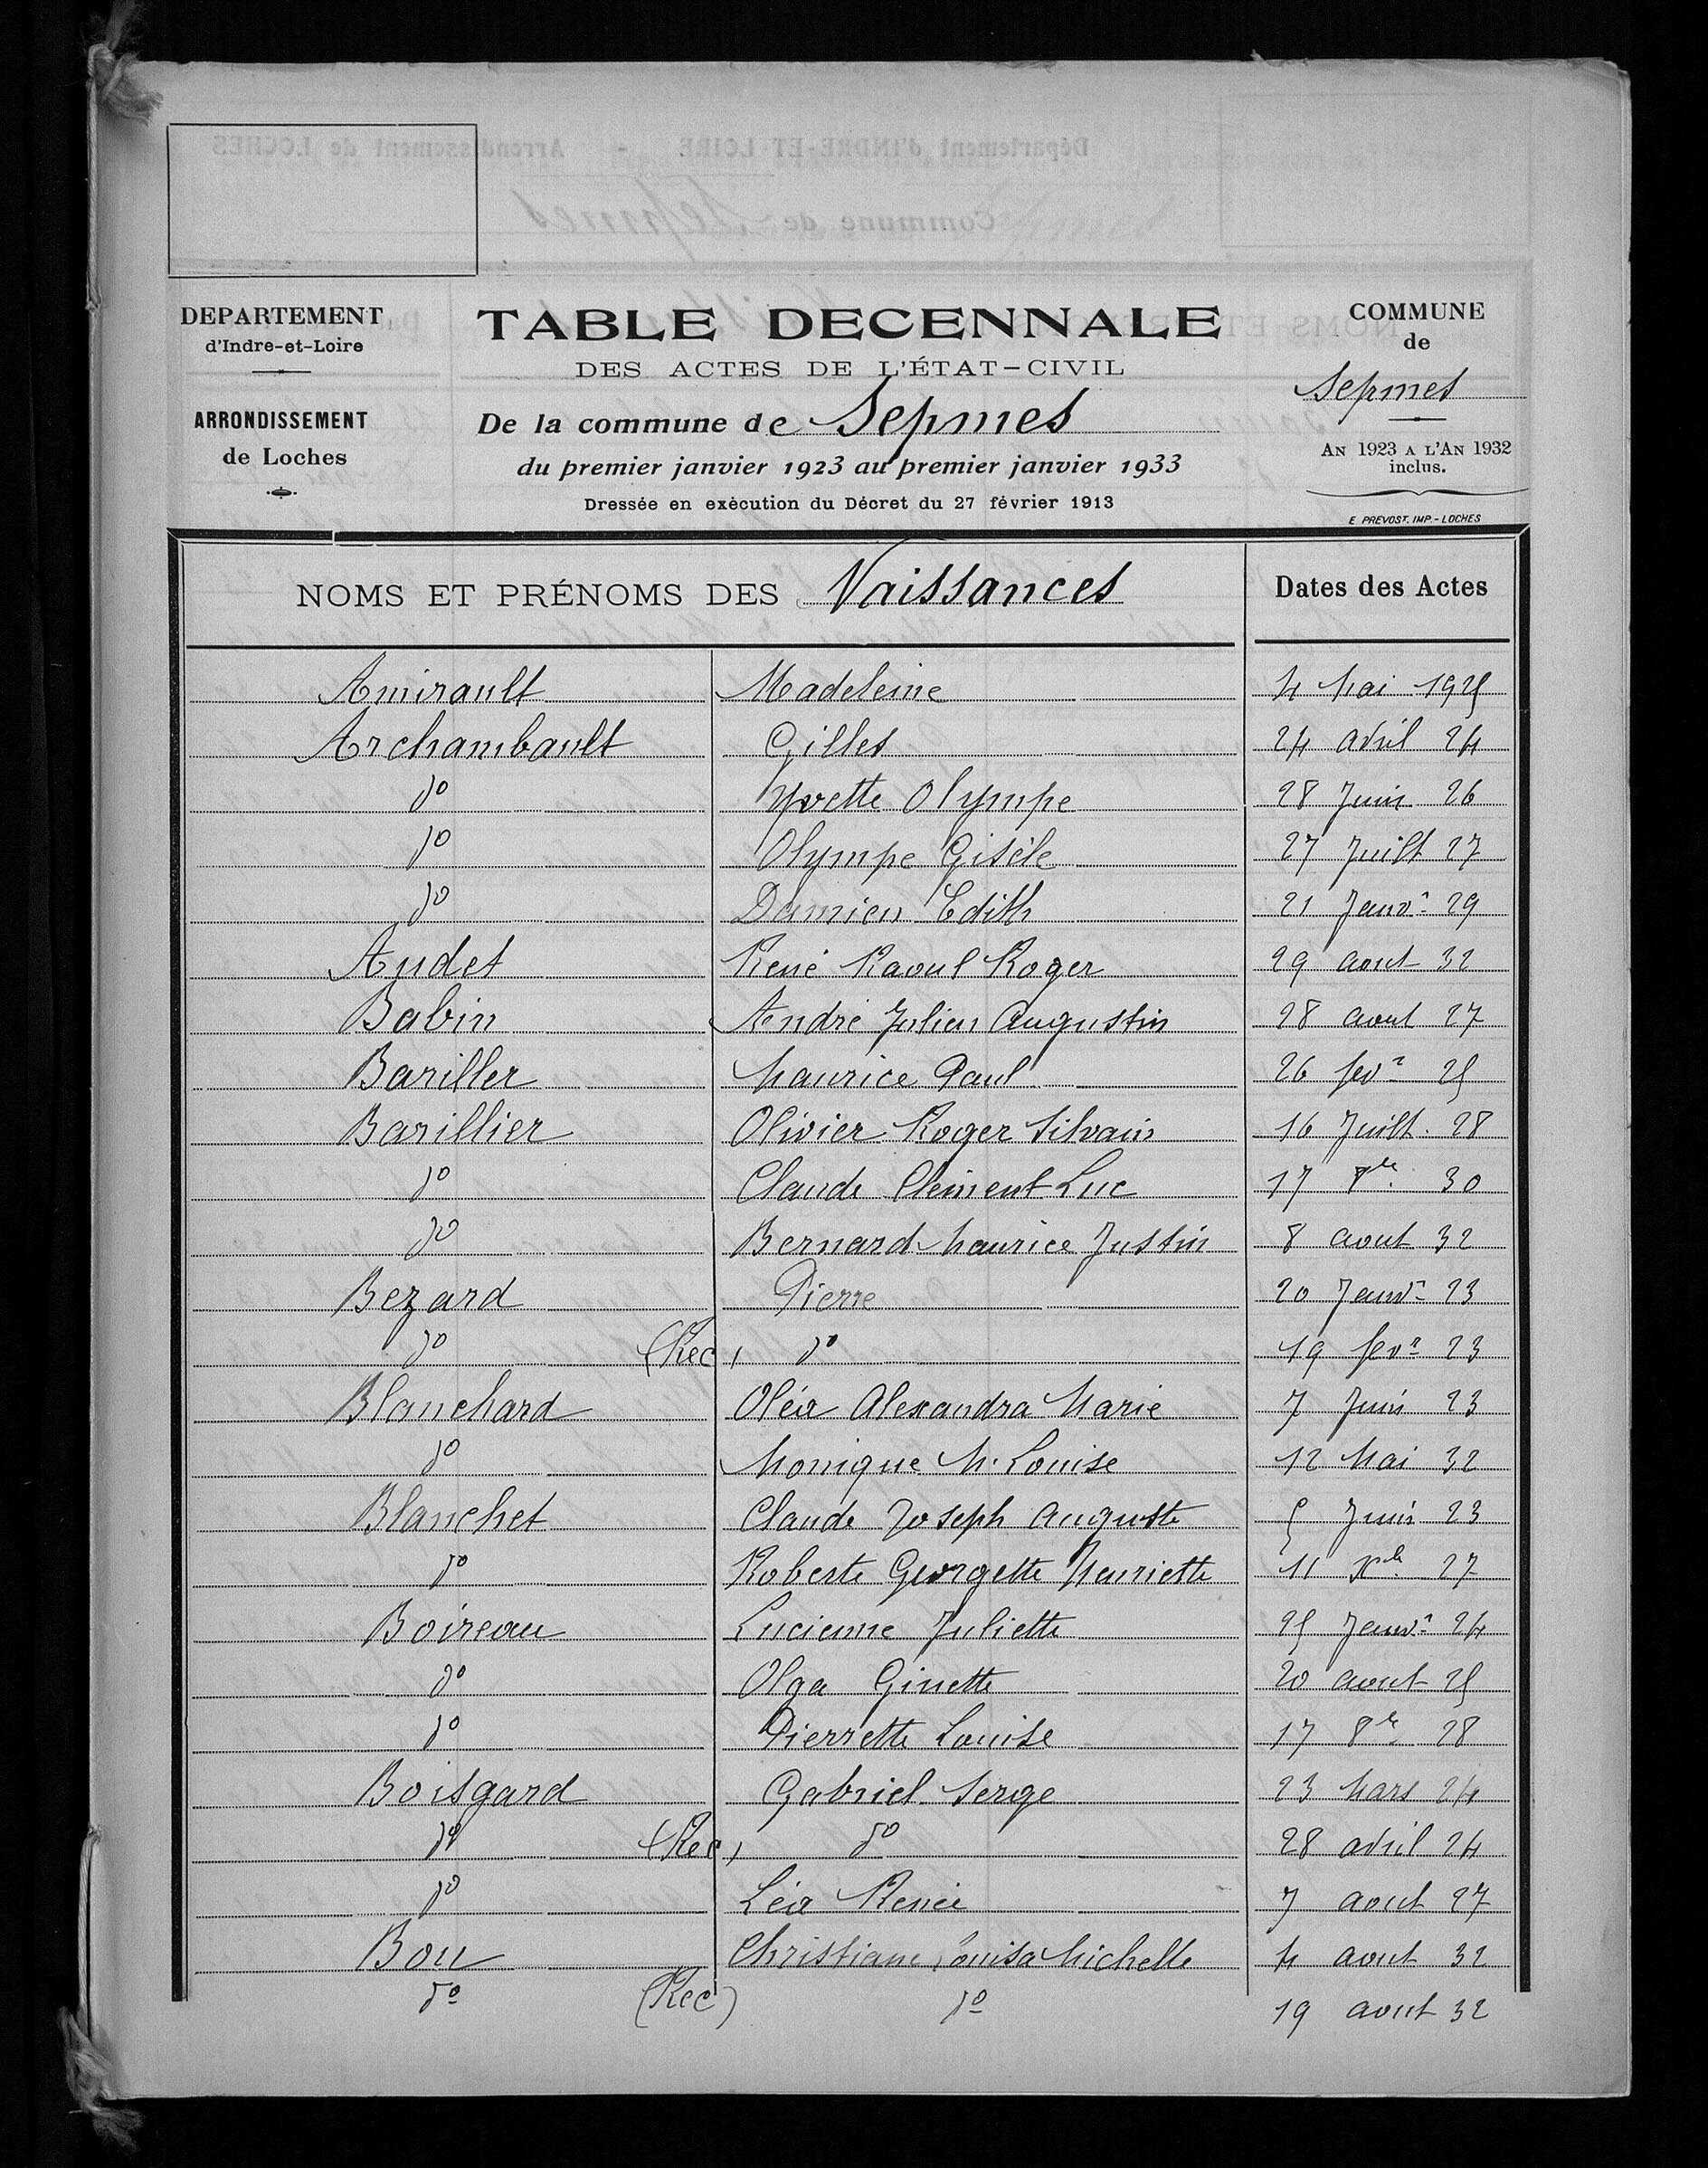 DEPARTEMENT
d'Indre-et-Loire
ARRONDISSEMENT
de Loches
TABLE DECENNALE
DES ACTES DE L'ÉTAT-CIVIL
De la commune de Sepmes
du premier janvier 1923 au premier janvier 1933
Dressée en exècution du Décret du 27 février 1913
COMMUNE
de
Sepmes
AN 1923 A L'AN 1932
inclus.
E. PREVOST. IMP. - LOCHES
NOMS ET PRÉNOMS DES Naissances Dates des Actes
Amirault Madeleine 4 Mai 1925
Archambault Gilles 24 avril 24
do Yvette Olympe 28 Juin 26
do Olympe Gisèle 27 Juilt 27
do Damien Edith 21 Janvr 29
Audet René Raoul Roger 29 aout 32
Babin André Julien Augustin 28 aout 27
Bariller Maurice Paul 26 fevr 25
Barillier Olivier Roger Silvain 16 Juilt. 28
do Claude Clément Luc 17 8re 30
do Bernard Maurice Justin 8 aout 32
Bezard Pierre 20 Janvr 23
do (Rec) do 19 fevr 23
Blanchard Oléa Alexandra Marie 7 Juin 23
do Monique M. Louise 12 Mai 32
Blanchet Claude Joseph Auguste 5 Juin 23
do Roberte Georgette Henriette 11 Xbre 27
Boireau Lucienne Juliette 25 Janvr 24
do Olga Ginette 20 aout 25
do Pierrette Louise 17 8re 28
Boisgard Gabriel Serge 23 Mars 24
do (Rec) do 28 avril 24
do Léa Renée 7 aout 27
Bou Christiane Louisa Michelle 4 aout 32
do (Rec) do 19 aout 32